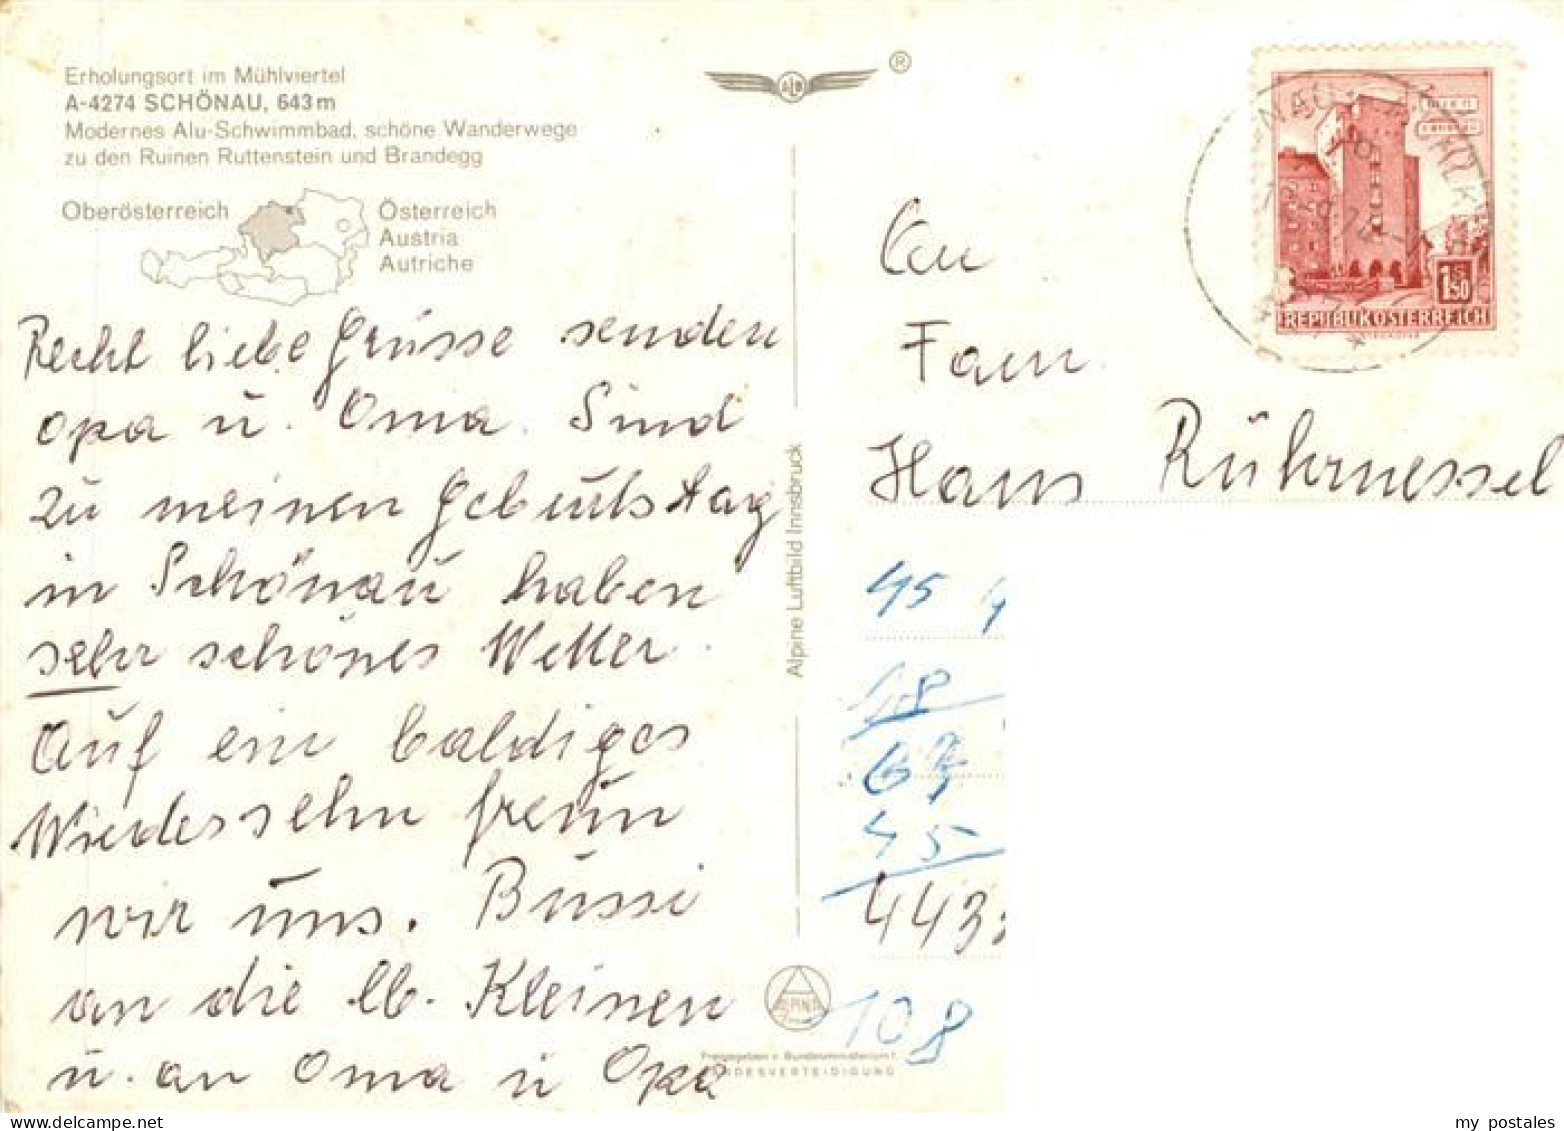 Erholungsort im Mühlviertel
A-4274 SCHÖNAU, 643 m
Modernes Alu-Schwimmbad, schöne Wanderwege
zu den Ruinen Ruttenstein und Brandegg
Oberösterreich
Österreich
Austria
Autriche
Recht liebe Grüsse senden
Opa u. Oma. Sind
zu meinen Geburtstag
in Schönau haben
sehr schönes Wetter.
Auf ein baldiges
Wiedersehn freun
wir uns. Bussi
an die lb. Kleinen
u. an Oma u Opa
Alpine Luftbild Innsbruck
ALPINE
Freigegeben v. Bundesministerium f.
LANDESVERTEIDIGUNG
®
1 S 50
REPUBLIK ÖSTERREICH
An
Fam
Hans Rührnessel
45
68
67
45
443
108
my postales